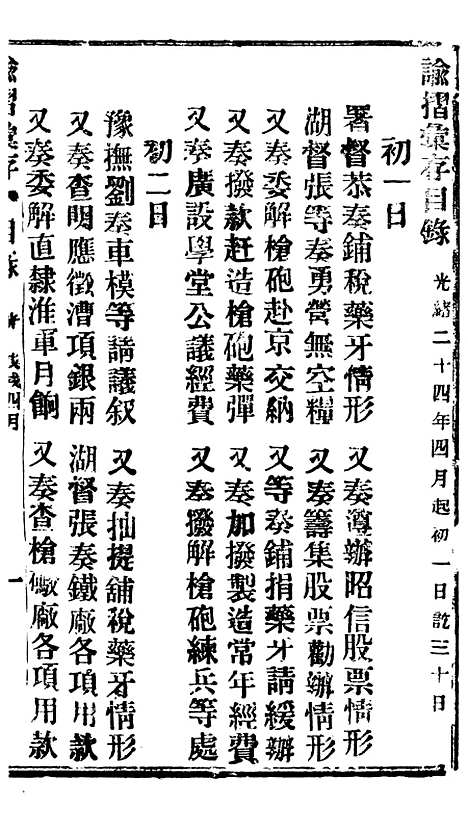 諭摺彙存目錄 光緒二十四年四月起初一日訖三十日
初一日
署督恭奏鋪稅藥牙情形 又奏遵辦昭信股票情形
湖督張等奏勇營無空糧 又奏籌集股票勸辦情形
又奏委解槍砲赴京交納 又等奏鋪捐藥牙請緩辦
又奏撥款赶造槍砲藥彈 又奏加撥製造常年經費
又奏廣設學堂公議經費 又奏撥解槍砲練兵等處
初二日
豫撫劉奏車模等請議叙 又奏抽提舖稅藥牙情形
又奏查明應徵漕項銀兩 湖督張奏鐵廠各項用款
又奏委解直隸淮軍月餉 又奏查槍砲廠各項用款
諭摺彙存 目錄 戊戌四月 一